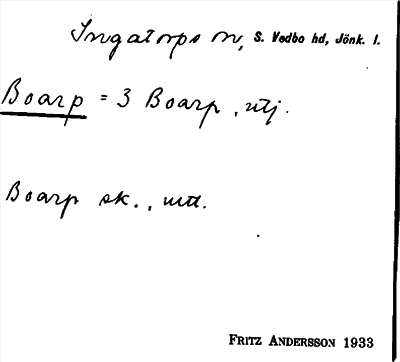 Ingatorps sn, S. Vedbo hd, Jönk. l.
Boarp = 3 Boarp, utj.
Boarp sk., utt.
FRITZ ANDERSSON 1933